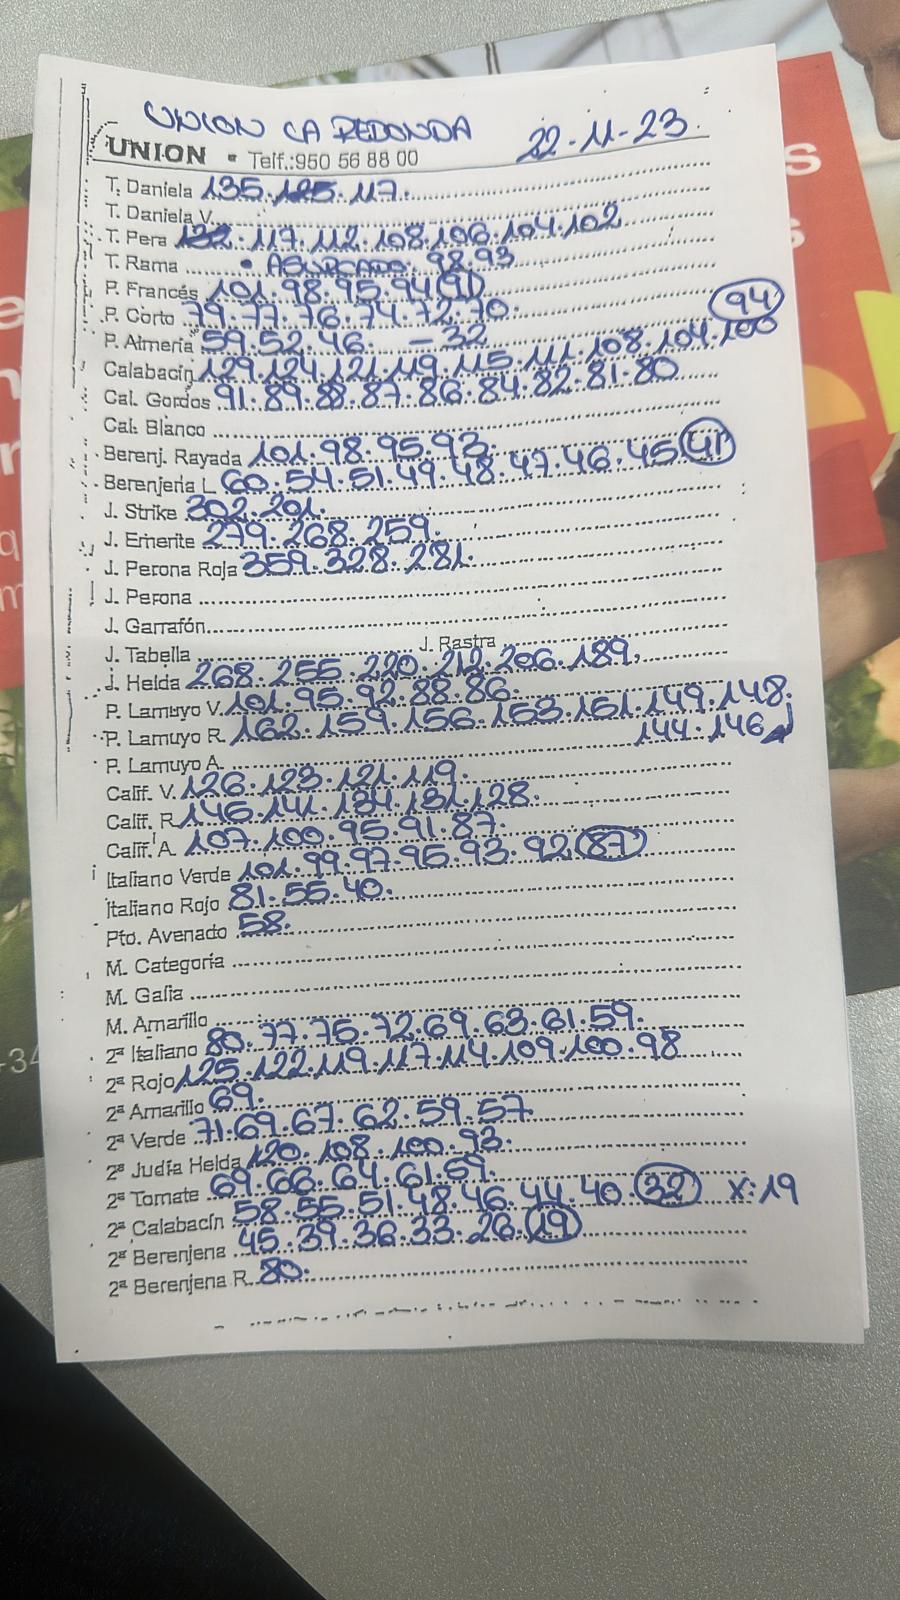 UNION LA REDONDA 22-11-23
UNION • Telf.:950 56 88 00
T. Daniela 135.125.117.
T. Daniela V.
T. Pera 132.117.112.108.106.104.102
T. Rama • ASURCADO. 98.93
P. Francés 101.98.95.94(91)
P. Corto 79.77.76.74.72.70.
P. Almería 59.52.46. - 32
Calabacín 129.124.121.119.115.111.108.104.100 (94)
Cal. Gordos 91.89.88.87.86.84.82.81.80
Cal. Blanco
Berenj. Rayada 101.98.95.93.
Berenjena L. 60.54.51.49.48.47.46.45 (41)
J. Strike 302.201.
J. Emerite 279.268.259.
J. Perona Roja 359.328.281.
J. Perona
J. Garrafón
J. Tabella J. Rastra
J. Helda 268.255.220.212.206.189.
P. Lamuyo V. 101.95.92.88.86.
P. Lamuyo R. 162.159.156.153.151.149.148.
144.146
P. Lamuyo A.
Calif. V. 126.123.121.119.
Calif. R 145.141.134.131.128.
Calif. A. 107.100.95.91.87.
Italiano Verde 101.99.97.95.93.92.(87)
Italiano Rojo 81.55.40.
Pto. Avenado 58.
M. Categoría
M. Galia
M. Amarillo
2ª Italiano 80.77.75.72.69.63.61.59.
2ª Rojo 125.122.119.117.114.109.100.98
2ª Amarillo 69.
2ª Verde 71.69.67.62.59.57.
2ª Judía Helda 120.108.100.93.
2ª Tomate 69.66.64.61.59.
2ª Calabacín 58.55.51.48.46.44.40.(32) X:19
2ª Berenjena 45.39.36.33.26.(19)
2ª Berenjena R. 80.